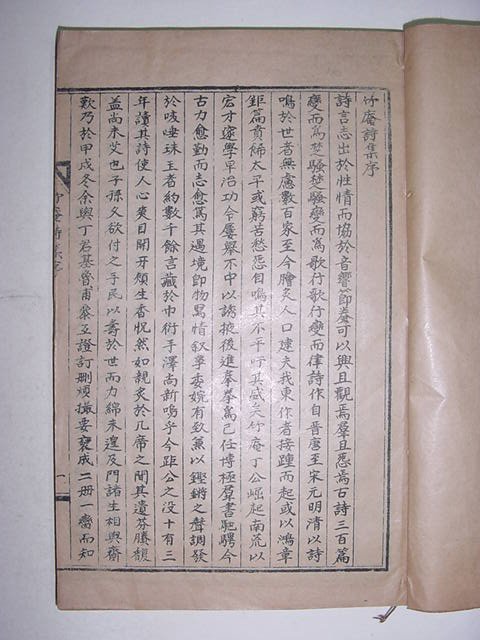 竹庵詩集序
詩言志出於性情而協於音響節奏可以興且觀焉羣且怨焉古詩三百篇
變而爲楚騷楚騷變而爲歌行歌行變而律詩作自晉唐至宋元明清以詩
鳴於世者無慮數百家至今膾炙人口逮夫我東作者接踵而起或以鴻章
鉅篇賁餙太平或窮苦愁怨自鳴其不平吁其盛矣竹庵丁公崛起南荒以
宏才邃學早治功令屢擧不中以誘掖後進拳拳爲己任博極羣書馳騁今
古力愈勤而志愈篤其遇境卽物寓情叙事委婉有致兼以鏗鏘之聲調發
於咳唾珠玉者約數千餘言藏於巾衍手澤尚新嗚乎今距公之沒十有三
年讀其詩使人心爽目開牙頰生香怳然如親炙於几帝之間其遺芬賸馥
益尚未艾也子孫久欲付之手民以壽於世而力綿未遑及門諸生相與齋
歎乃於甲戌冬余與丁君基會甫叅互證訂刪煩撮要裒成二冊一臠而知
竹庵詩集序
一